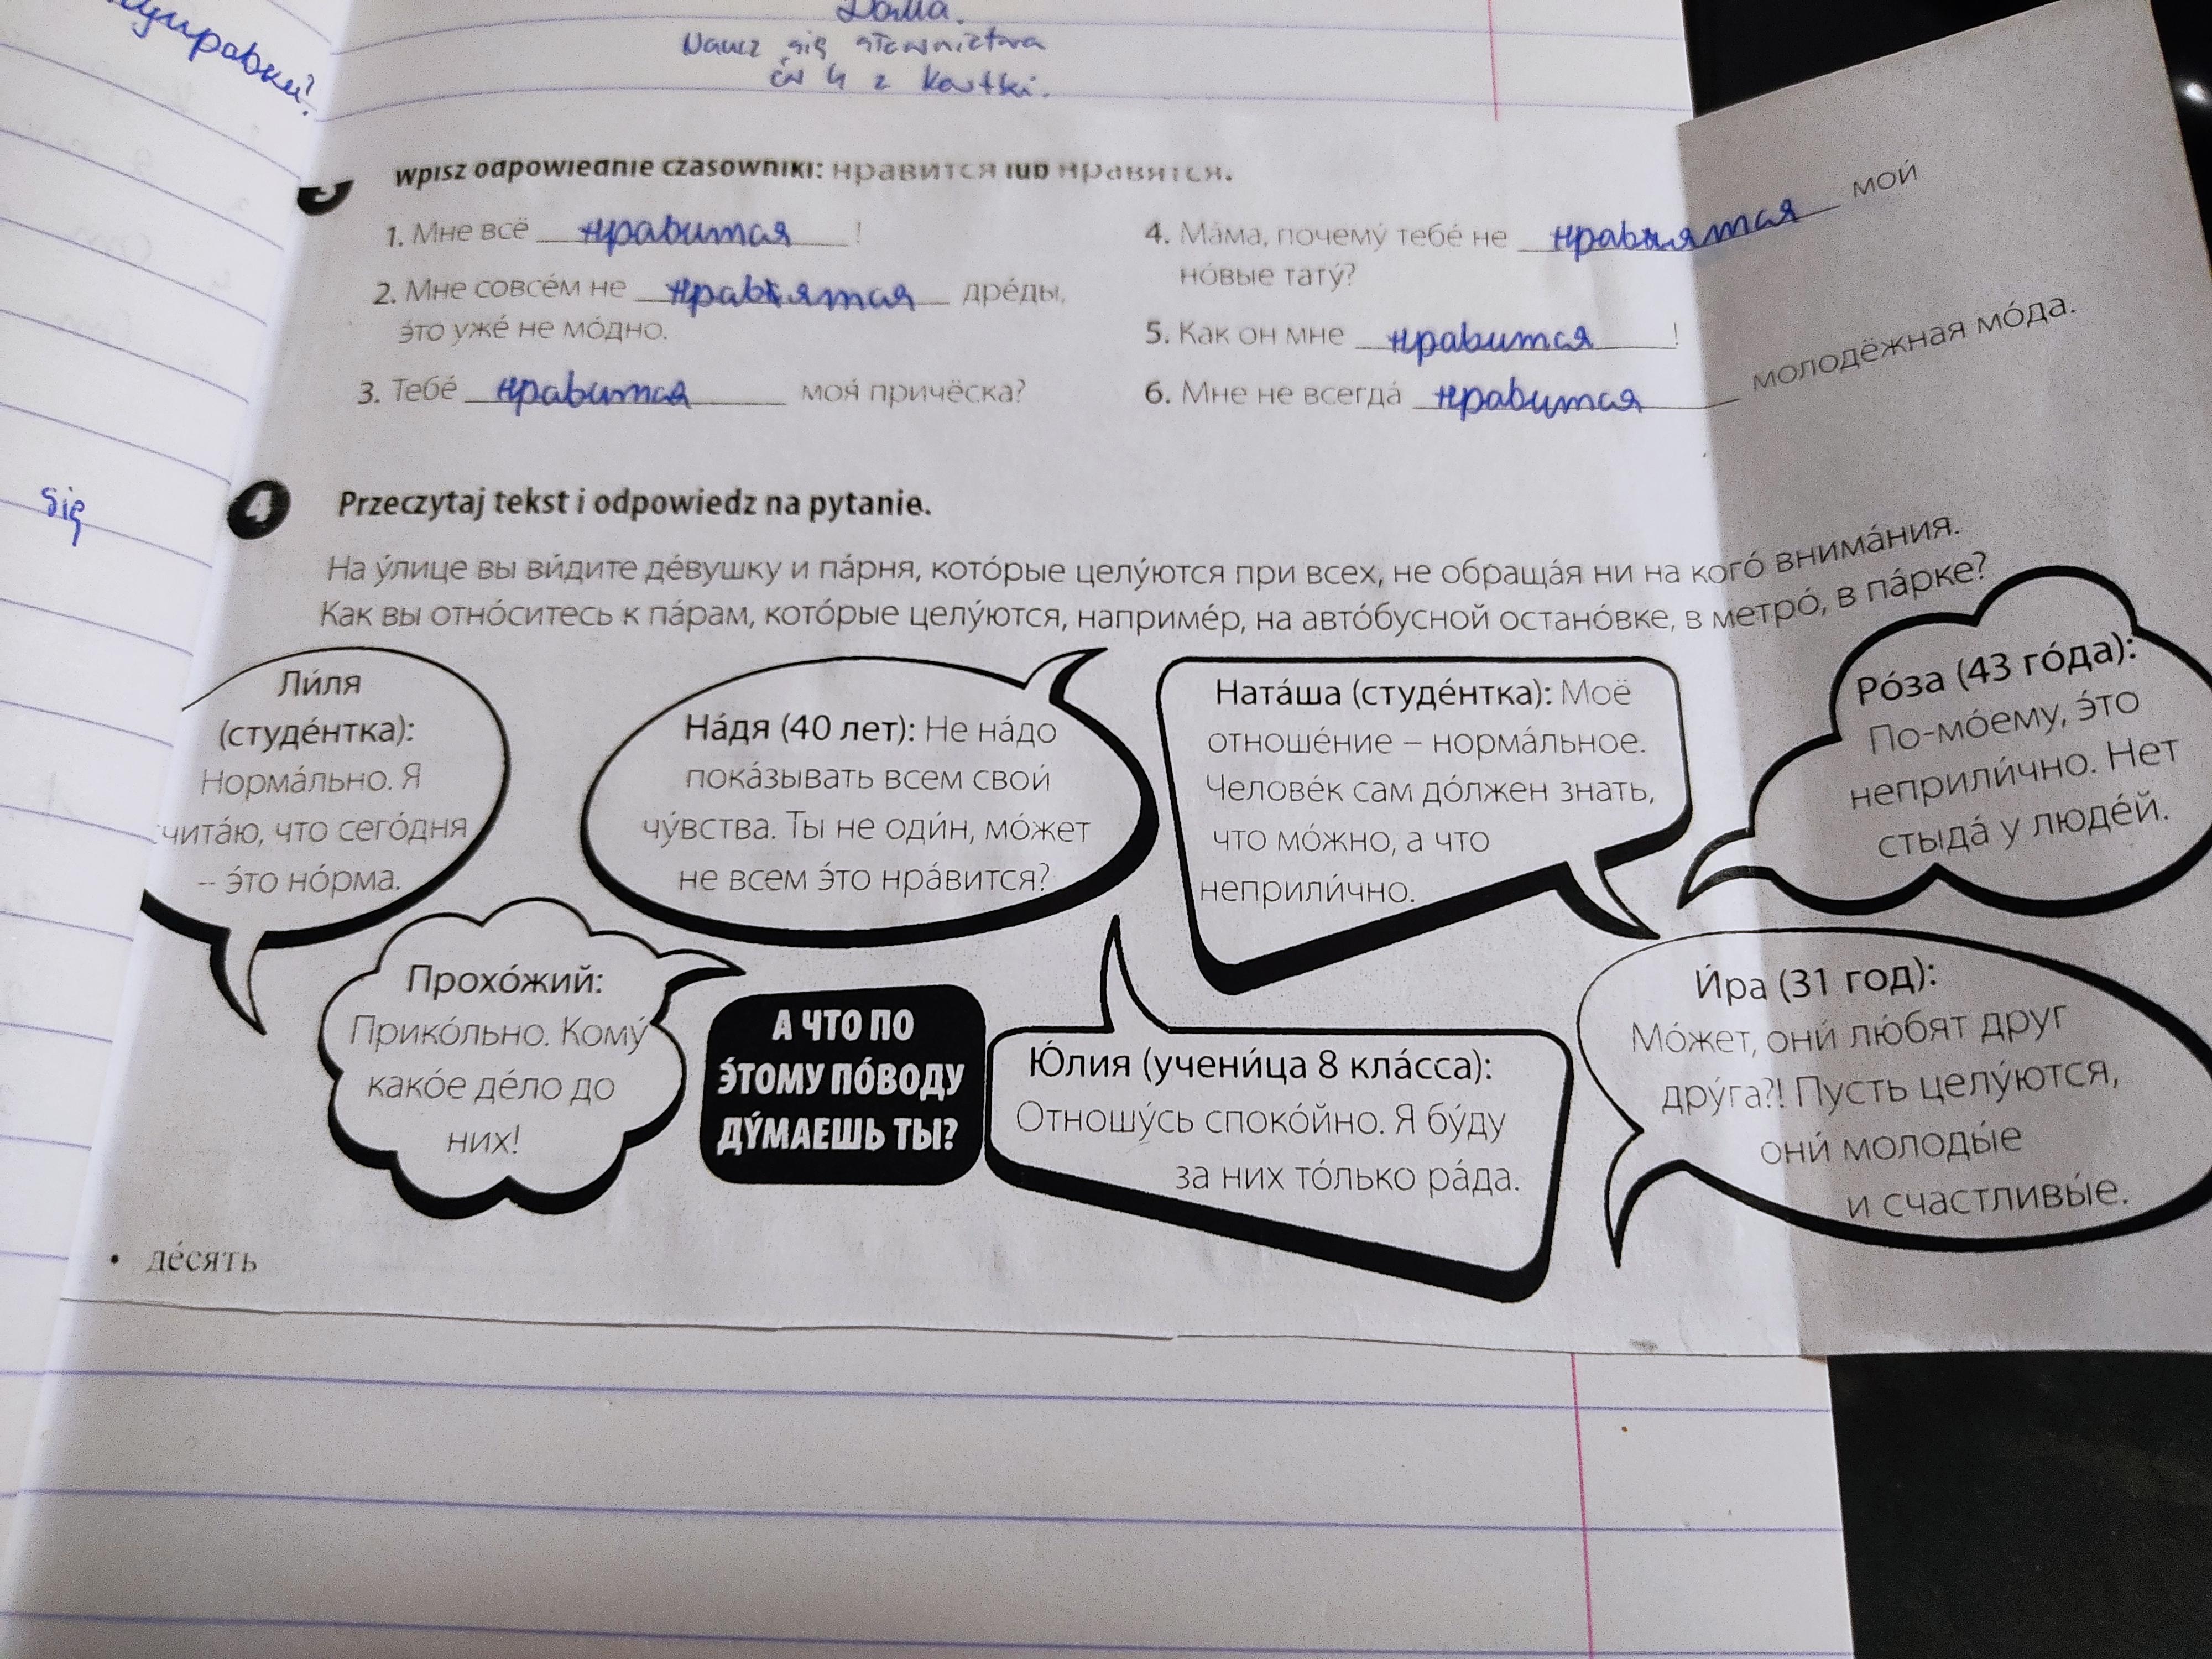 Дома.
Naucz się słownictwa
ćw 4 z kartki.
się
3 Wpisz odpowiednie czasowniki: нравится lub нравятся.
1. Мне всё нравится !
2. Мне совсе́м не нравятся дре́ды,
э́то уже́ не мо́дно.
3. Тебе́ нравится моя́ причёска?
4. Ма́ма, почему́ тебе́ не нравятся мои́
но́вые тату́?
5. Как он мне нравится !
6. Мне не всегда́ нравится молодёжная мо́да.
4 Przeczytaj tekst i odpowiedz na pytanie.
На у́лице вы ви́дите де́вушку и па́рня, кото́рые целу́ются при всех, не обраща́я ни на кого́ внима́ния.
Как вы отно́ситесь к па́рам, кото́рые целу́ются, наприме́р, на авто́бусной остано́вке, в метро́, в па́рке?
Ли́ля
(студе́нтка):
Норма́льно. Я
чита́ю, что сего́дня
– э́то но́рма.
На́дя (40 лет): Не на́до
пока́зывать всем свои́
чу́вства. Ты не оди́н, мо́жет
не всем э́то нра́вится?
Ната́ша (студе́нтка): Моё
отноше́ние – норма́льное.
Челове́к сам до́лжен знать,
что мо́жно, а что
неприли́чно.
Ро́за (43 го́да):
По-мо́ему, э́то
неприли́чно. Нет
стыда́ у люде́й.
Прохо́жий:
Прико́льно. Кому́
како́е де́ло до
них!
А ЧТО ПО
Э́ТОМУ ПО́ВОДУ
ДУ́МАЕШЬ ТЫ?
Ю́лия (учени́ца 8 кла́сса):
Отношу́сь споко́йно. Я бу́ду
за них то́лько ра́да.
И́ра (31 год):
Мо́жет, они́ лю́бят друг
дру́га?! Пусть целу́ются,
они́ молоды́е
и счастливы́е.
• де́сять